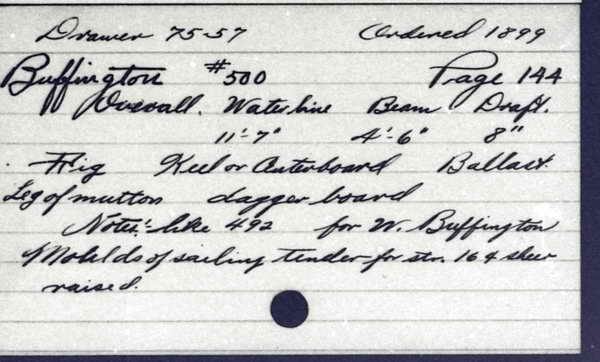 Drawer 75-57 Ordered 1899
Buffington #500 Page 144
Overall. Waterline Beam Draft.
11'-7" 4'-6" 8"
Rig Keel or Centerboard Ballast.
Leg of mutton dagger board
Notes:- like 492 for W. Buffington
Molds of sailing tender for str. 164 sheer
raised.